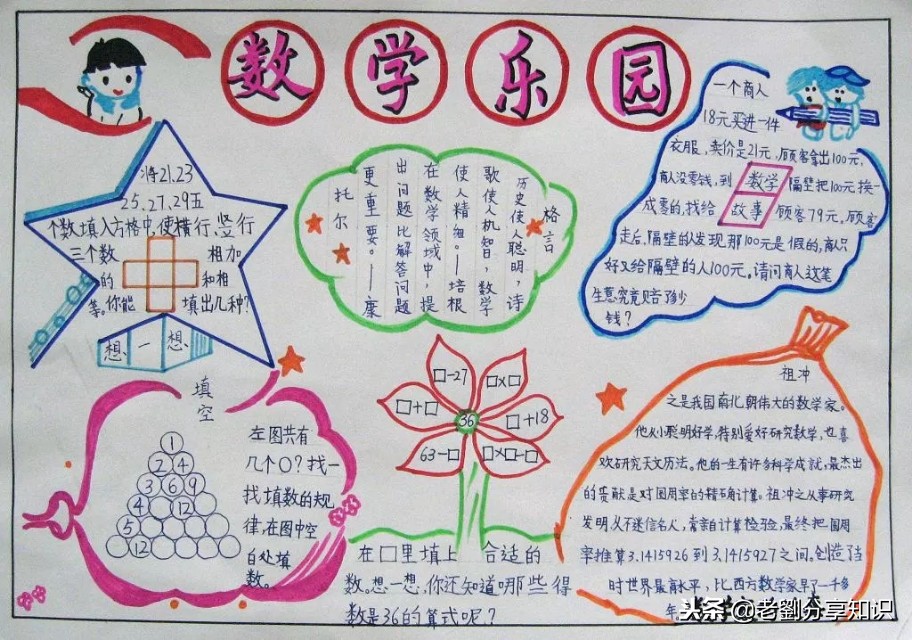 数学乐园
将21.23
25.27.29五
个数填入方格中,使横行,竖行
三个数 相加
的 和相
等。你能 填出几种?
想一想
格言
历史使人聪明,诗
歌使人机智,数学
使人精细。——培根
在数学领域中,提
出问题比解答问题
更重要。——康
托尔
一个商人
18元买进一件
衣服,卖价是21元,顾客拿出100元,
商人没零钱,到 隔壁把100元换
成零的,找给 顾客79元,顾客
数学
故事
走后,隔壁的发现那100元是假的,商人只
好又给隔壁的人100元。请问商人这笔
生意究竟赔了多少
钱?
填空
1
2 4
3 6 9
4 12
5
12
左图共有
几个○?找一
找填数的规
律,在图中空
白处填
数。
□-27
□x□
□+□
36
□+18
63-□
□x□-□
在□里填上 合适的
数。想一想,你还知道哪些得
数是36的算式呢?
祖冲
之是我国南北朝伟大的数学家。
他从小聪明好学,特别爱好研究数学,也喜
欢研究天文历法。他的一生有许多科学成就,最杰出
的贡献是对圆周率的精确计算。祖冲之从事研究
发明,从不迷信名人,常亲自计算检验,最终把圆周
率推算3.1415926到3.1415927之间。创造了当
时世界最高水平,比西方数学家早了一千多
年
头条@老劉分享知识